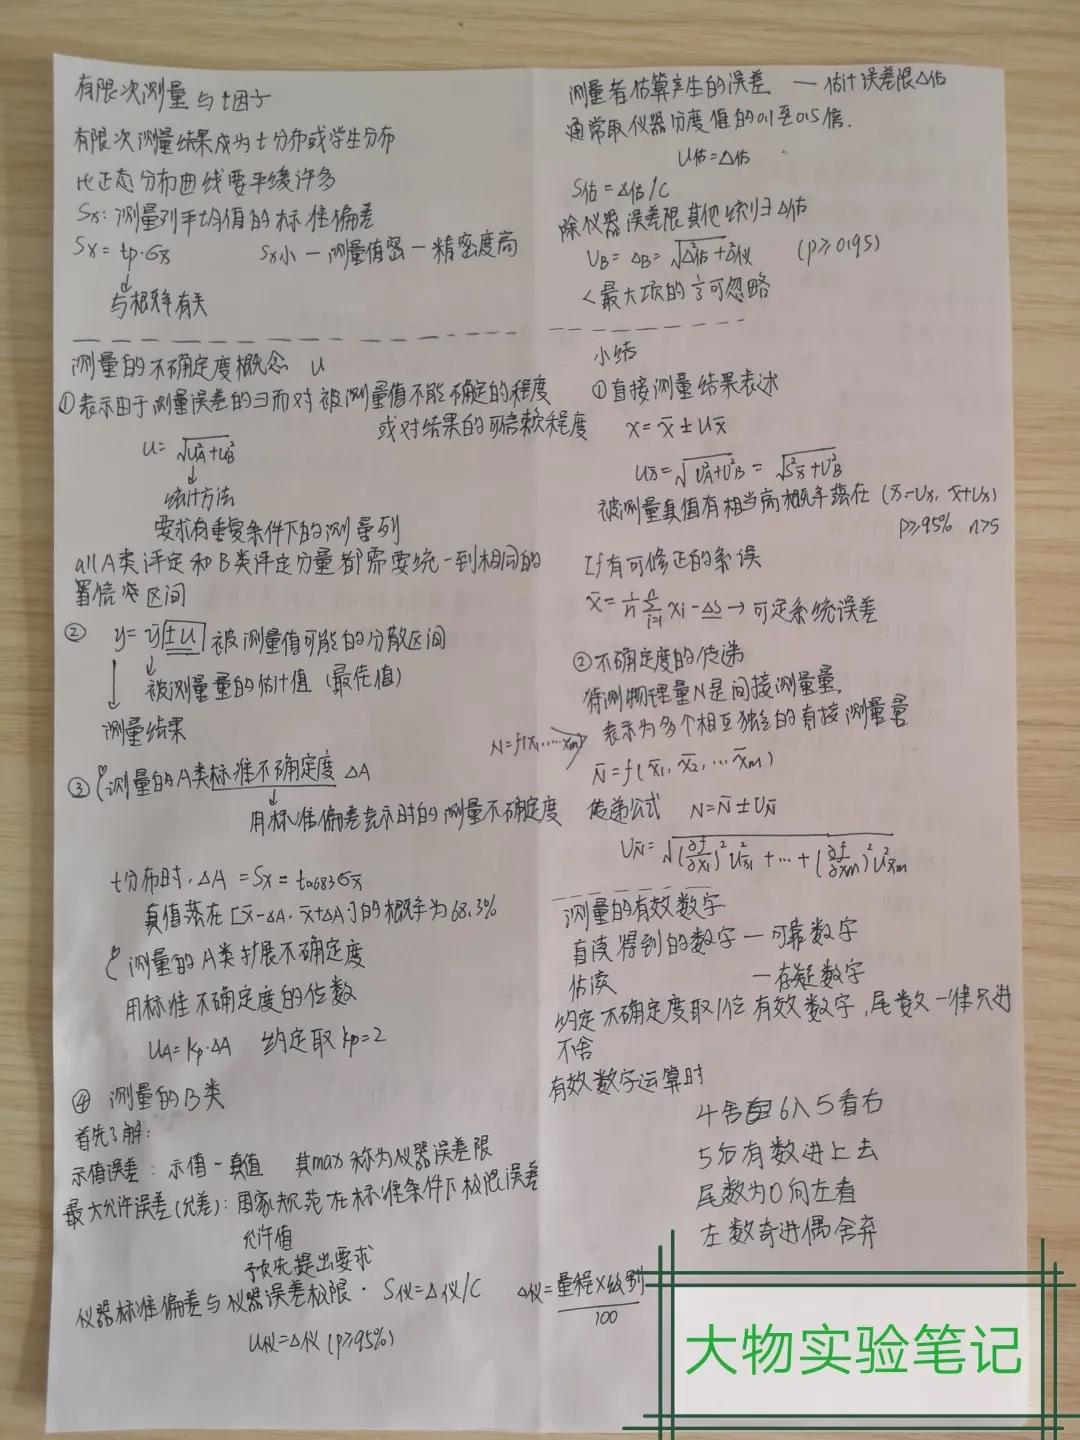 有限次测量与t因子
有限次测量结果成为t分布或学生分布
比正态分布曲线要平缓许多
Sx̄:测量列平均值的标准偏差
Sx̄=tp·σx̄ Sx̄小一测量值密一精密度高
与概率有关
测量的不确定度概念 U
①表示由于测量误差的∃而对被测量值不能确定的程度
或对结果的可信赖程度
U=√(U²A+U²B)
统计方法
要求有重复条件下的测量列
all A类评定和B类评定分量都需要统一到相同的
置信区间
② y=ȳ±U 被测量值可能的分散区间
被测量量的估计值(最佳值)
测量结果
③ 测量的A类标准不确定度 ΔA
用标准偏差表示时的测量不确定度
t分布时,ΔA=Sx̄=t0.683σx̄
真值落在[x̄-ΔA,x̄+ΔA]的概率为68.3%
测量的A类扩展不确定度
用标准不确定度的倍数
UA=kp·ΔA 约定取kp=2
④ 测量的B类
首先了解:
示值误差:示值-真值 其max称为仪器误差限
最大允许误差(允差):国家规范在标准条件下极限误差
允许值
预先提出要求
仪器标准偏差与仪器误差极限· S仪=Δ仪/C Δ仪=量程×级别/100
U仪=Δ仪(p≥95%)
测量者估算产生的误差 — 估计误差限Δ估
通常取仪器分度值的0.1至0.5倍.
U估=Δ估
S估=Δ估/C
除仪器误差限其他统归Δ估
UB=ΔB=√(Δ²估+Δ²仪) (p≥0.95)
<最大项的⅓可忽略
小结
①直接测量结果表述
x=x̄±Ux̄
Ux̄=√(U²A+U²B)=√(S²x̄+U²B)
被测量真值有相当高概率落在(x̄-Ux,x̄+Ux)
p≥95% n>5
If有可修正的系误
x̄=1/n Σ(i=1,n) xi-Δs→可定系统误差
②不确定度的传递
待测物理量N是间接测量量,
表示为多个相互独立的直接测量量
N=f(x1,…xm)
N̄=f(x̄1,x̄2,…x̄m)
传递公式 N=N̄±UN̄
UN̄=√((∂f/∂x1)²U²x̄1+…+(∂f/∂xm)²U²x̄m)
测量的有效数字
直读得到的数字一可靠数字
估读 一存疑数字
约定不确定度取1位有效数字,尾数一律只进
不舍
有效数字运算时
4舍6入5看右
5后有数进上去
尾数为0向左看
左数奇进偶舍弃
大物实验笔记